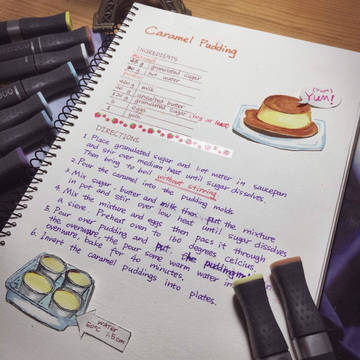 Caramel Pudding
INGREDIENTS
granulated sugar
hot water
milk
unsalted butter
granulated sugar
eggs
(yum)
Yum!
DIRECTIONS
1. Place granulated sugar and hot water in saucepan
and stir over medium heat until sugar dissolves.
Then bring to boil without stirring
2. Pour the caramel into the pudding molds
3. Mix sugar, butter and milk then put the mixture
in pot and stir over low heat until sugar dissolves
4. Mix the mixture and eggs then pass it through
a sieve. Preheat oven to 160 degrees celcius.
5. Pour over pudding and put the pudding
ovenware the pour some warm water in
ovenware, bake for 40 minutes.
6. Invert the caramel puddings into plates.
water
60°C 1.5cm